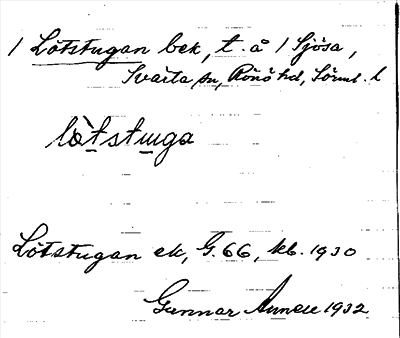 1 Lötstugan bek, t. å 1 Sjösa,
Svärta sn, Rönö hd, Sörml. l
lö̀tstu̲ga
Lötstugan ek, G. 66, kb. 1930
Gunnar 1932